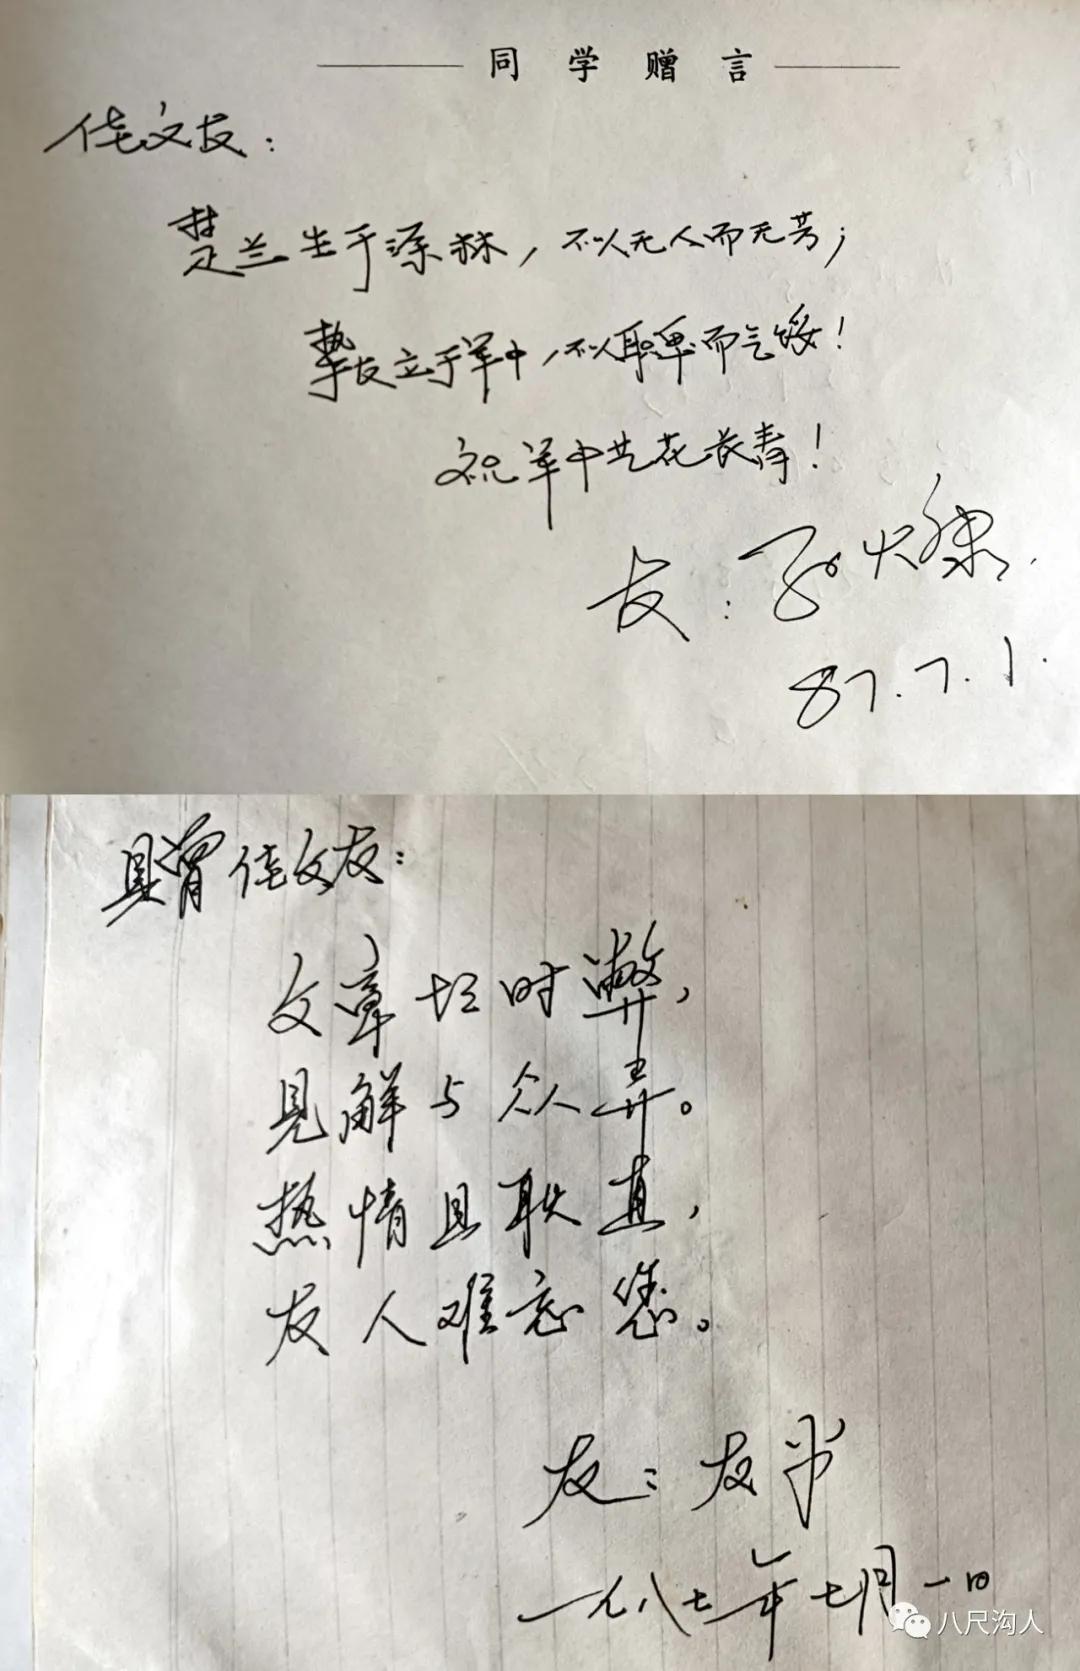 同学赠言
佳文友：
楚兰生于深林，不以无人而无芳；
挚友立于羊中，不以职卑而气馁！
祝羊中艺花长青！
友：孙火
87.7.1.
赠佳文友：
文章切时弊，
见解与众异。
热情且耿直，
友人难忘您。
友：友书
一九八七年七月一日
八尺沟人